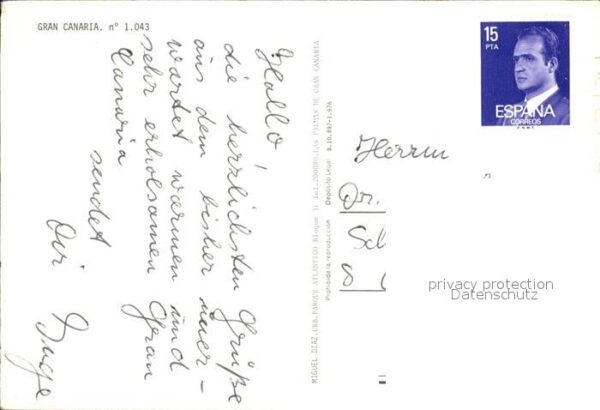 GRAN CANARIA. nº 1.043
Hallo!
die herrlichsten Grüße
aus dem bisher uner-
wartet warmen und
sehr erholsamen Gran
Canaria
sendet
Dir
Inge
MIGUEL DIAZ, URB. PARQUE ATLANTICO Bloque
LAS PALMAS DE GRAN CANARIA
Prohibida la reproducción
Depósito Legal B. 10.897-1.976
15
PTA
ESPAÑA
CORREOS
F.N.M.T.
Herrn
Dr.
privacy protection
Datenschutz